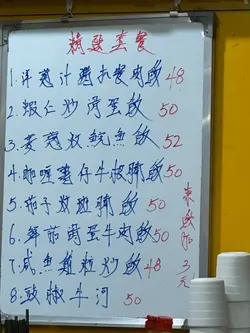 精選套餐
1.洋蔥汁豬扒餐肉飯 48
2.蝦仁炒滑蛋飯 50
3.姜蔥炆魚飯 52
4.咖喱薯仔牛根腩飯 50
5.茄子炆斑腩飯 50
6.鮮茄滑蛋牛肉飯 50
7.咸魚雞粒炒飯 48
8.豉椒牛河 50
凍飲加3元